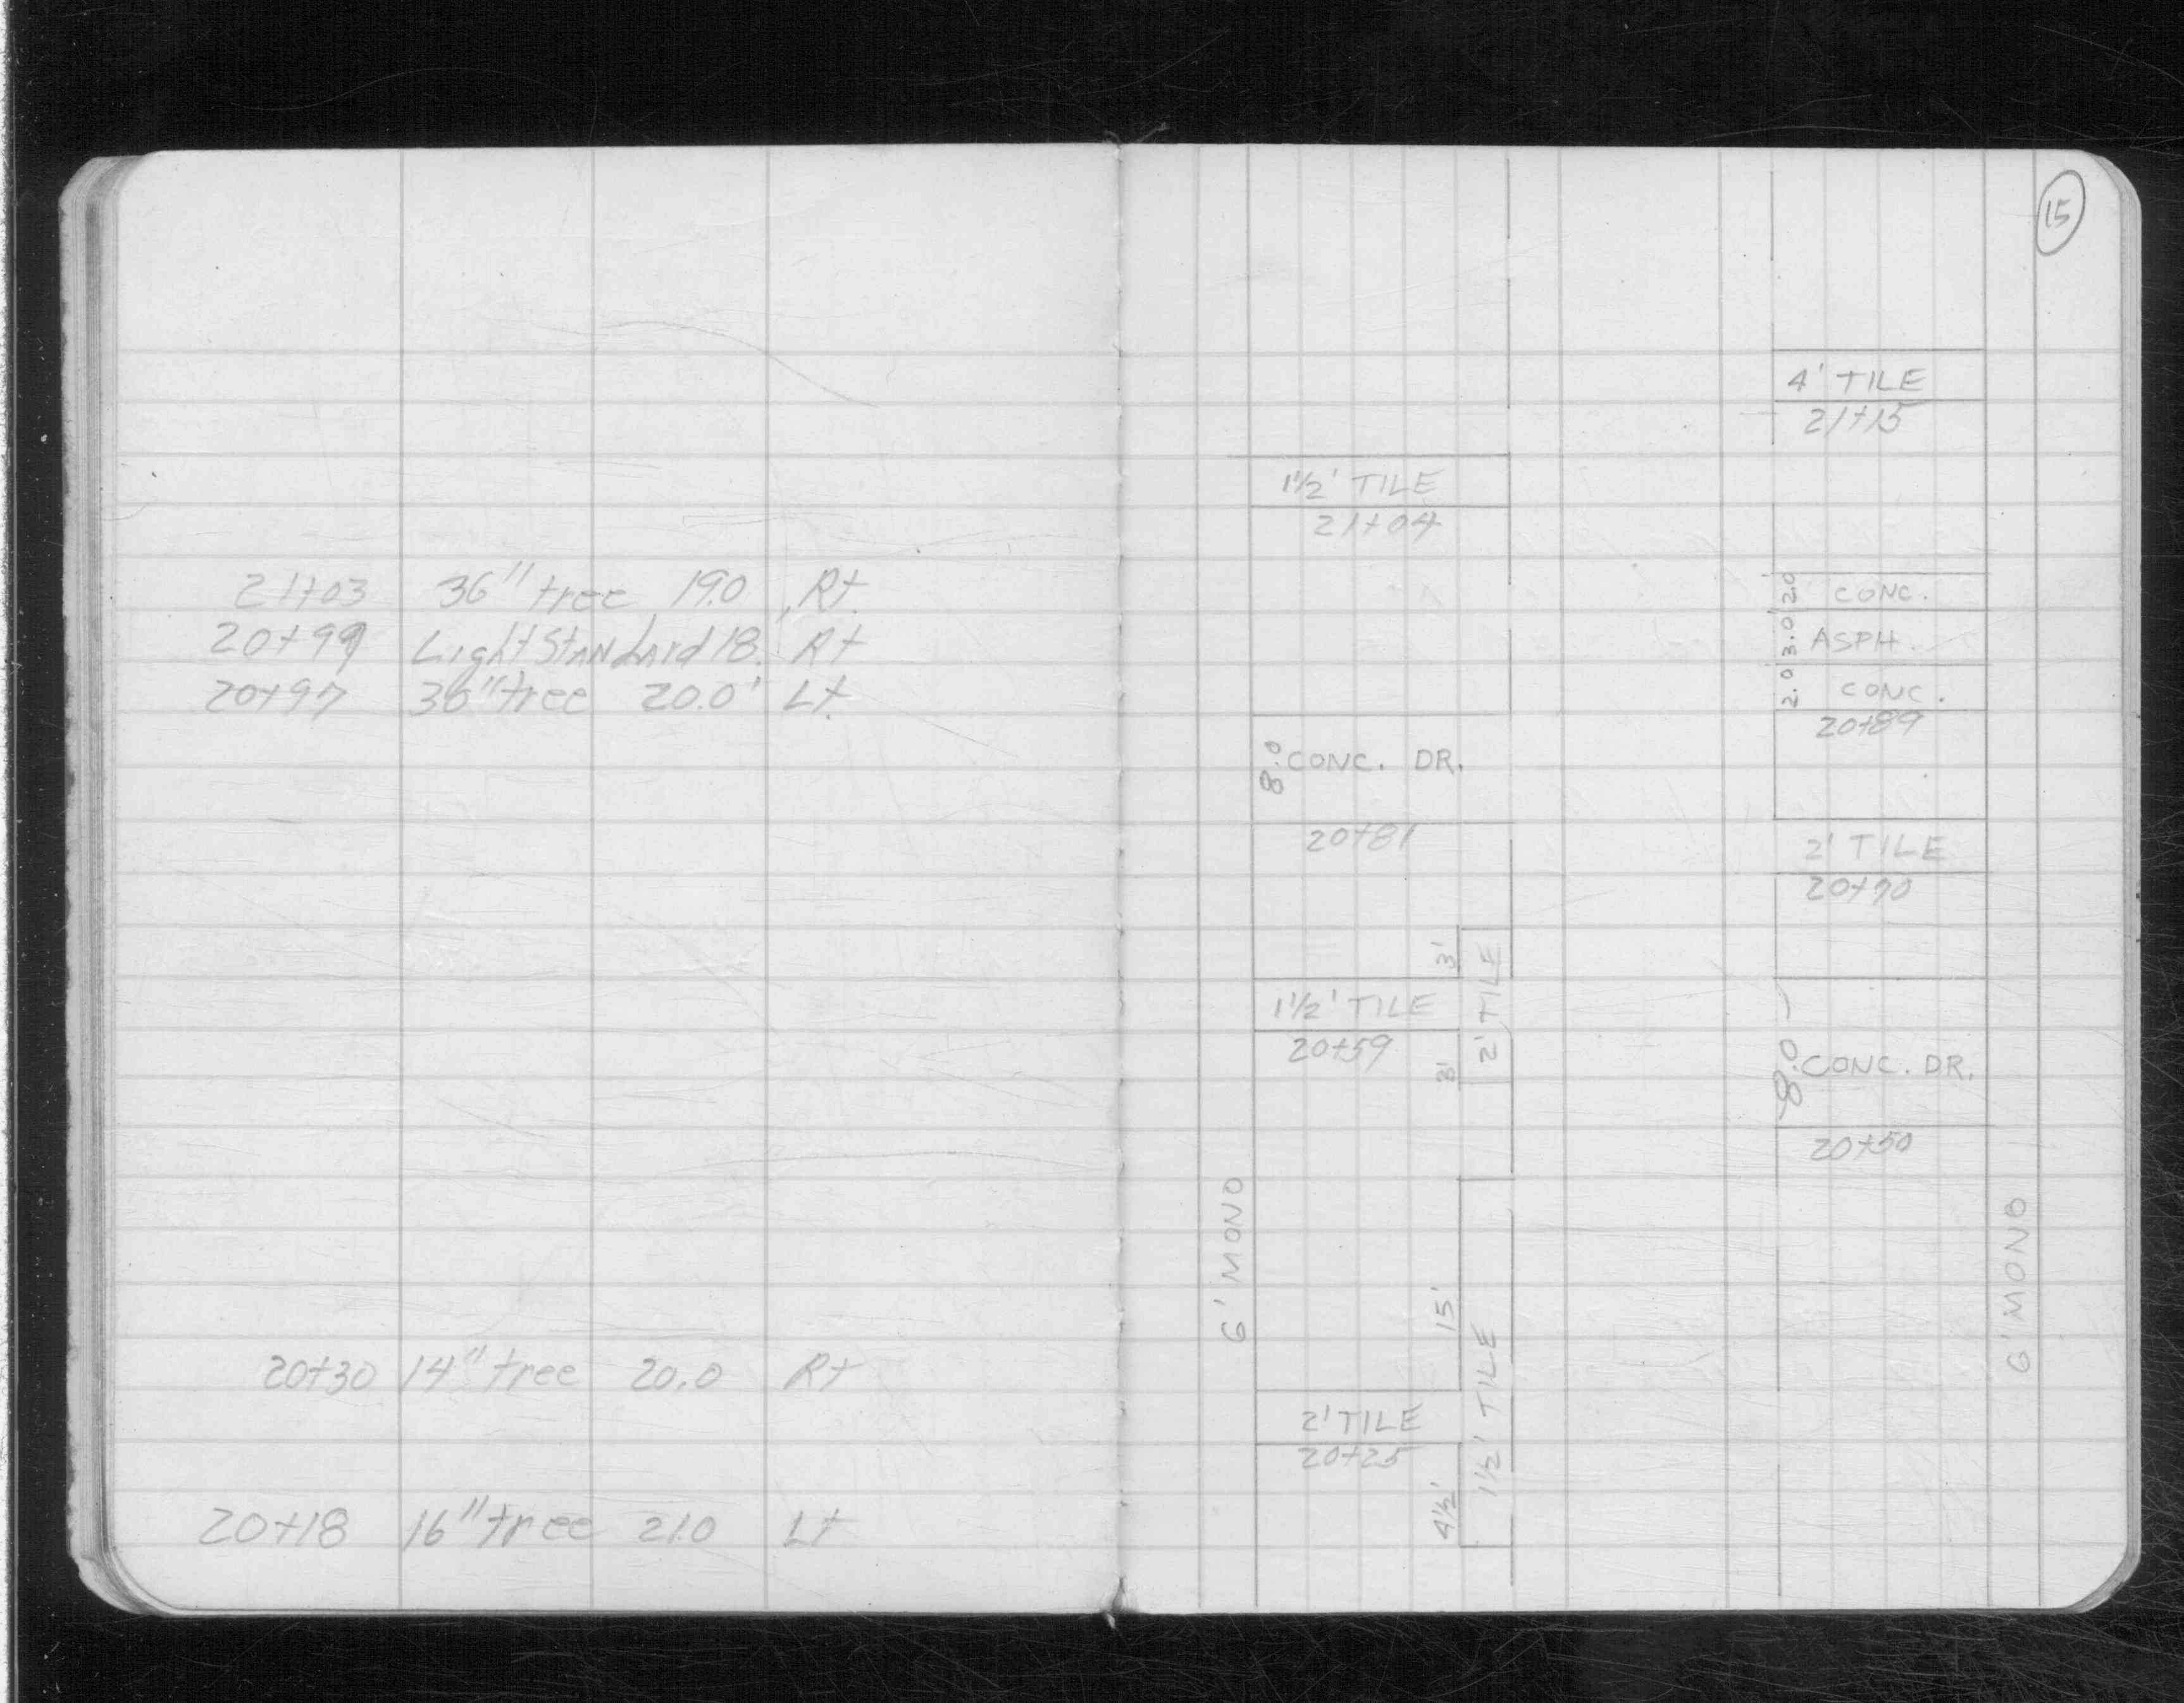 15
21+03 36" tree 19.0 Rt.
20+99 Light Standard 18. Rt
20+97 36" tree 20.0' Lt.
20+30 14" tree 20.0 Rt
20+18 16" tree 21.0 Lt
4' TILE
21+15
1½' TILE
21+04
2.0' CONC.
3.0' ASPH.
2.0 CONC.
20+89
8.0 CONC. DR.
20+81
2' TILE
20+70
3'
2' TILE
1½' TILE
20+59
3'
8.0 CONC. DR.
20+50
6' MONO
6' MONO
15'
1½' TILE
2' TILE
20+25
4½'